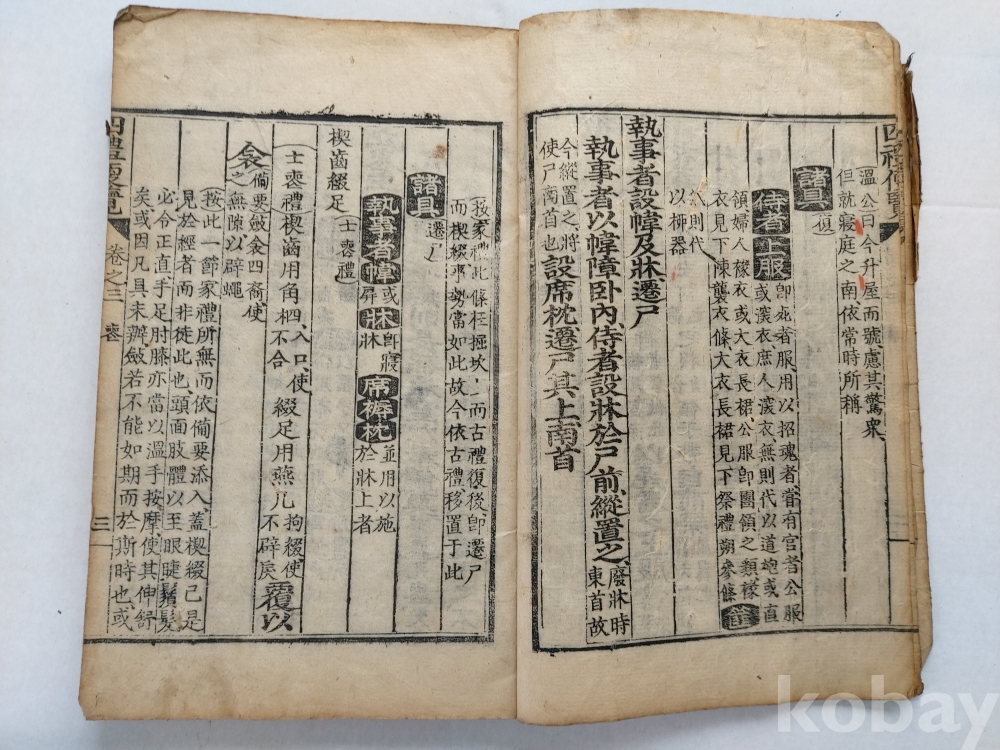 四禮便覽
溫公曰今升屋而號慮其驚衆
但就寢庭之南依常時所稱
諸具 復
侍者 上服 卽死者服用以招魂者當有官者公服
或深衣庶人深衣無則代以道袍或直
領婦人褖衣或大衣長裙公服卽團領之類褖
衣見下陳襲衣條大衣長裙見下祭禮朔參條
則代
以柳器
執事者設幃及牀遷尸
執事者以幃障臥內侍者設牀於尸前縱置之 廢牀時
東首故
今縱置之將
使尸南首也 設席枕遷尸其上南首
按家禮此條在掘坎
而古禮復後卽遷尸
而楔綴事勢當如此故今依古禮移置于此
諸具 遷尸
執事者 幃 或屛 牀 卽寢牀 席 褥 枕 並用以施
於牀上者
楔齒綴足 士喪禮
士喪禮楔齒用角柶 入口使
不合 綴足用燕几 拘綴使
不辟戾 覆以
衾 備要斂衾四裔使
之無隙以辟蠅
按此一節家禮所無而依備要添入蓋楔綴已是
見於經者而非徒此也頭面肢體以至眼睫鬚髮
必令正直手足肘膝亦當以溫手按摩使其伸舒
矣或因凡具未辦斂若不能如期而於斯時也或
四禮便覽 卷之三 喪 三
kobay